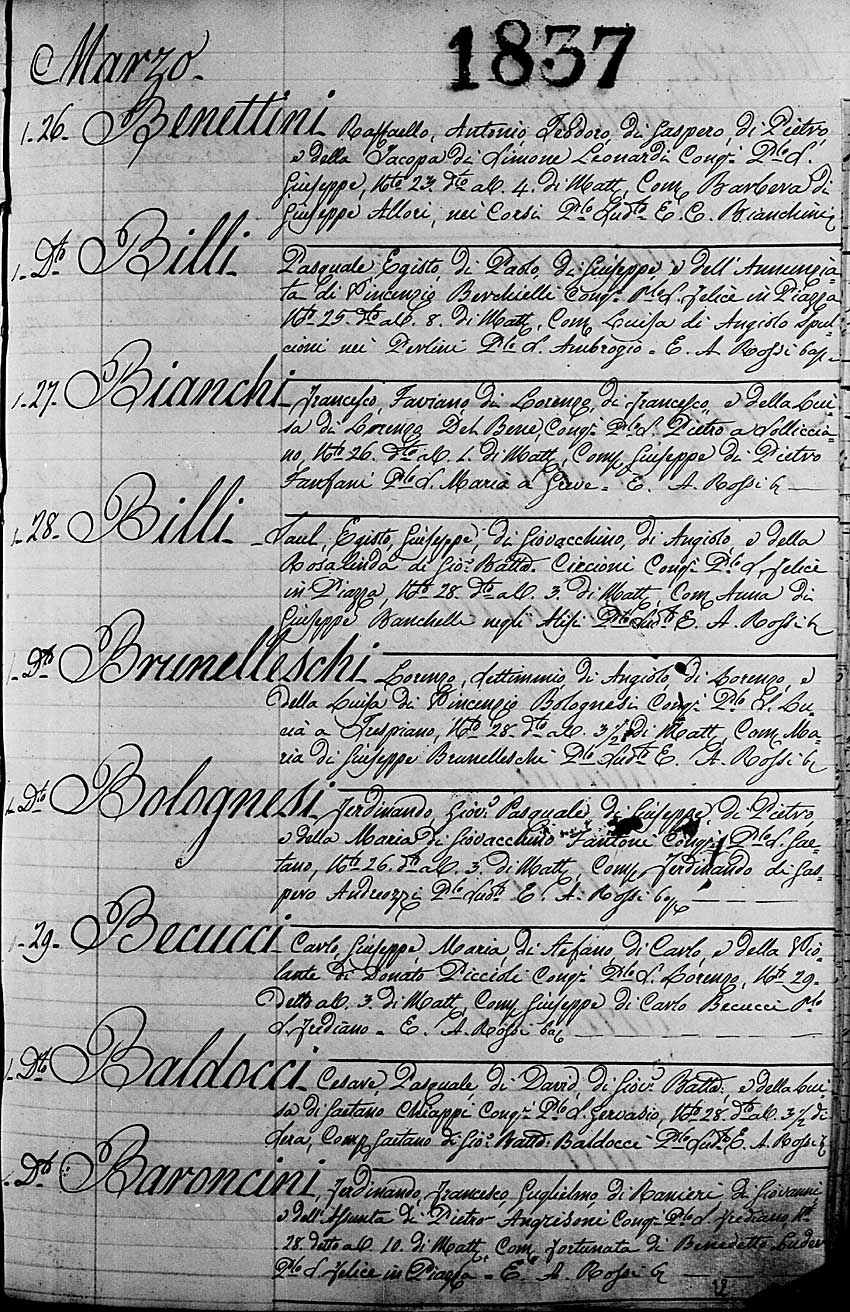 Marzo.
1837
1. 26. Benettini Raffaello, Antonio, Teodoro, di Gaspero, di Pietro,
e della Jacopa di Simone Leonardi Cong.i P.lo S.
Giuseppe, N.to 23. d.to al O. 4. di Matt. Com. Barbera di
Giuseppe Allori, nei Corsi P.lo Sud.to E. C. Bianchini
1. D.to Billi Pasquale, Egisto, di Paolo, di Giuseppe, e dell'Annunzia-
ta di Vincenzio Berchielli Cong.i P.lo S. Felice in Piazza
N.to 25. d.to al O. 8. di Matt. Com. Luisa di Angiolo
nei Perlini P.lo S. Ambrogio = E. A. Rossi
1. 27. Bianchi Francesco, Faviano, di Lorenzo, di Francesco, e della Lui-
sa di Lorenzo Del Bene, Cong.i P.lo S. Pietro a Solliccia-
no, N.to 26. d.to al O. 1. di Matt. Comp. Giuseppe di Pietro
Fanfani P.lo S. Maria a Greve = E. A. Rossi
1. 28. Billi Saul, Egisto, Giuseppe, di Giovacchino, di Angiolo, e della
Rosalinda di Gio. Batta. Ciccioni Cong.i P.lo S. Felice
in Piazza, N.to 28. d.to al O. 3. di Matt. Com. Anna di
Giuseppe Banchelli negli Alisi P.lo Sud.to E. A. Rossi
1. D.to Brunelleschi Lorenzo, Settimmio di Angiolo di Lorenzo, e
della Luisa di Vincenzio Bolognesi Cong.i P.lo S. Lu-
cia a Trespiano, N.to 28. d.to al O. 3 1/2 di Matt. Com. Ma-
ria di Giuseppe Brunelleschi P.lo Sud.to E. A. Rossi
1. D.to Bolognesi Ferdinando, Giov. Pasquale, di Giuseppe, di Pietro,
e della Maria di Giovacchino Fantoni Cong.i P.lo S. Gae-
tano, N.to 26. d.to al O. 3. di Matt. Comp. Ferdinando di Gas-
pero Andreozzi P.lo Sud.to E. A. Rossi
1. 29. Becucci Carlo, Giuseppe, Maria, di Stefano, di Carlo, e della Vio-
lante di Donato Piccioli Cong.i P.lo S. Lorenzo, N.to 29.
Detto al O. 3. di Matt. Comp. Giuseppe di Carlo Becucci P.lo
S. Frediano = E. A. Rossi
1. D.to Baldocci Cesare, Pasquale, di David, di Giov. Batta. e della Lui-
sa di Gaetano Chiappi Cong.i P.lo S. Gervasio, N.to 28. d.to al O. 3 1/2 di
Sera, Comp. Gaetano di Gio. Batta. Baldocci P.lo Sud.to E. A. Rossi
D.to Baroncini Ferdinando, Francesco, Guglielmo, di Ranieri di Giovanni
e dell'Assunta di Pietro Angresoni Cong.i P.lo S. Frediano N.to
28. detto al O. 10. di Matt. Com. Fortunata di Benedetto
P.lo S. Felice in Piazza = E. A. Rossi